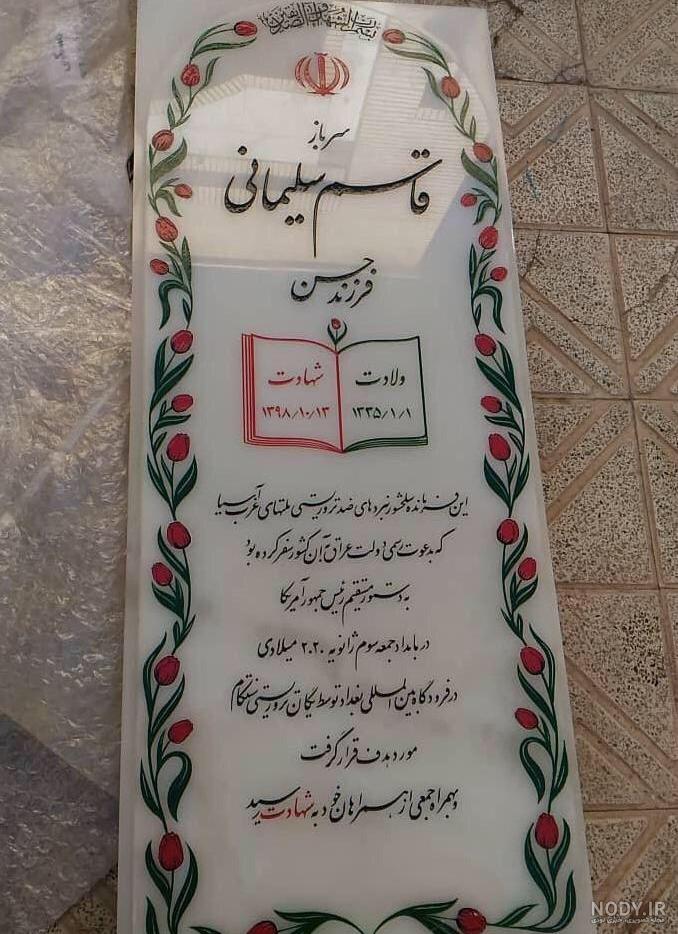 بسم رب الشهداء و الصدیقین
سرباز
قاسم سلیمانی
فرزند حسن
ولادت
۱۳۳۵/۱/۱
شهادت
۱۳۹۸/۱۰/۱۳
این فرمانده سلحشور نبردهای ضد تروریستی ملتهای غرب آسیا
که بدعوت رسمی دولت عراق به آن کشور سفر کرده بود
به دستور مستقیم رئیس جمهور آمریکا
در بامداد جمعه سوم ژانویه ۲۰۲۰ میلادی
در فرودگاه بین المللی بغداد توسط یگان تروریستی سنتکام
مورد هدف قرار گرفت
و بهمراه جمعی از همراهان خود به شهادت رسید
NODY.IR